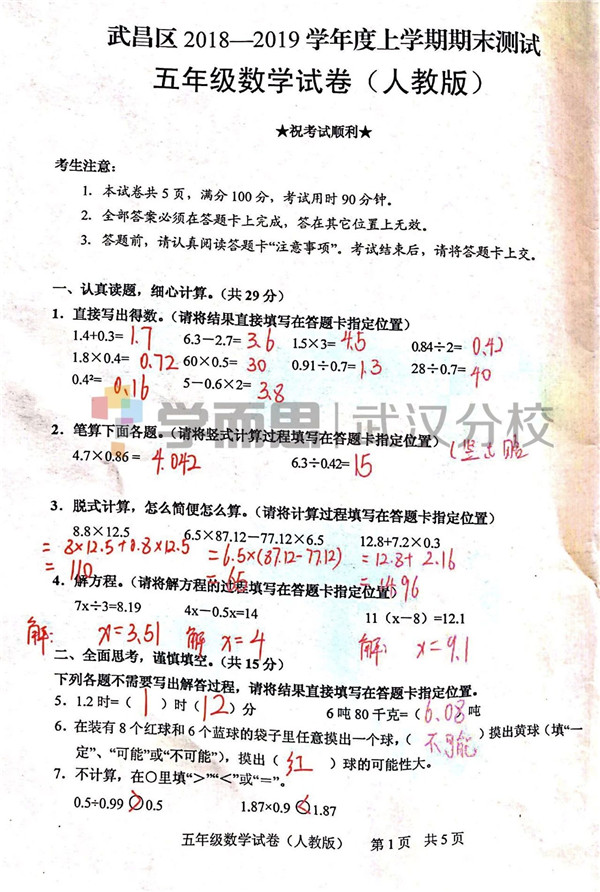 武昌区 2018—2019 学年度上学期期末测试
五年级数学试卷（人教版）
★祝考试顺利★
考生注意：
1. 本试卷共 5 页，满分 100 分，考试用时 90 分钟。
2. 全部答案必须在答题卡上完成，答在其它位置上无效。
3. 答题前，请认真阅读答题卡“注意事项”。考试结束后，请将答题卡上交。
一、认真读题，细心计算。（共 29 分）
1. 直接写出得数。（请将结果直接填写在答题卡指定位置）
1.4+0.3= 1.7 6.3－2.7= 3.6 1.5×3= 4.5 0.84÷2= 0.42
1.8×0.4= 0.72 60×0.5= 30 0.91÷0.7= 1.3 28÷0.7= 40
0.4²= 0.16 5－0.6×2= 3.8
学而思 武汉分校
2. 笔算下面各题。（请将竖式计算过程填写在答题卡指定位置）
4.7×0.86 = 4.042 6.3÷0.42= 15
3. 脱式计算，怎么简便怎么算。（请将计算过程填写在答题卡指定位置）
8.8×12.5 6.5×87.12－77.12×6.5 12.8+7.2×0.3
= 8×12.5+0.8×12.5 = 6.5×(87.12-77.12) = 12.8+ 2.16
= 110 = 65 = 14.96
4. 解方程。（请将解方程的过程填写在答题卡指定位置）
7x÷3=8.19 4x－0.5x=14 11（x－8）=12.1
解: x=3.51 解 x=4 解: x=9.1
二、全面思考，谨慎填空。（共 15 分）
下列各题不需要写出解答过程，请将结果直接填写在答题卡指定位置。
5. 1.2 时=（ 1 ）时（ 12 ）分 6 吨 80 千克=（ 6.08 吨
6. 在装有 8 个红球和 6 个蓝球的袋子里任意摸出一个球，（ 不可能 ）摸出黄球（填“一
定”、“可能”或“不可能”），摸出（ 红 ）球的可能性大。
7. 不计算，在○里填“>”“<”或“=”。
0.5÷0.99 > 0.5 1.87×0.9 < 1.87
五年级数学试卷（人教版） 第 1 页 共 5 页